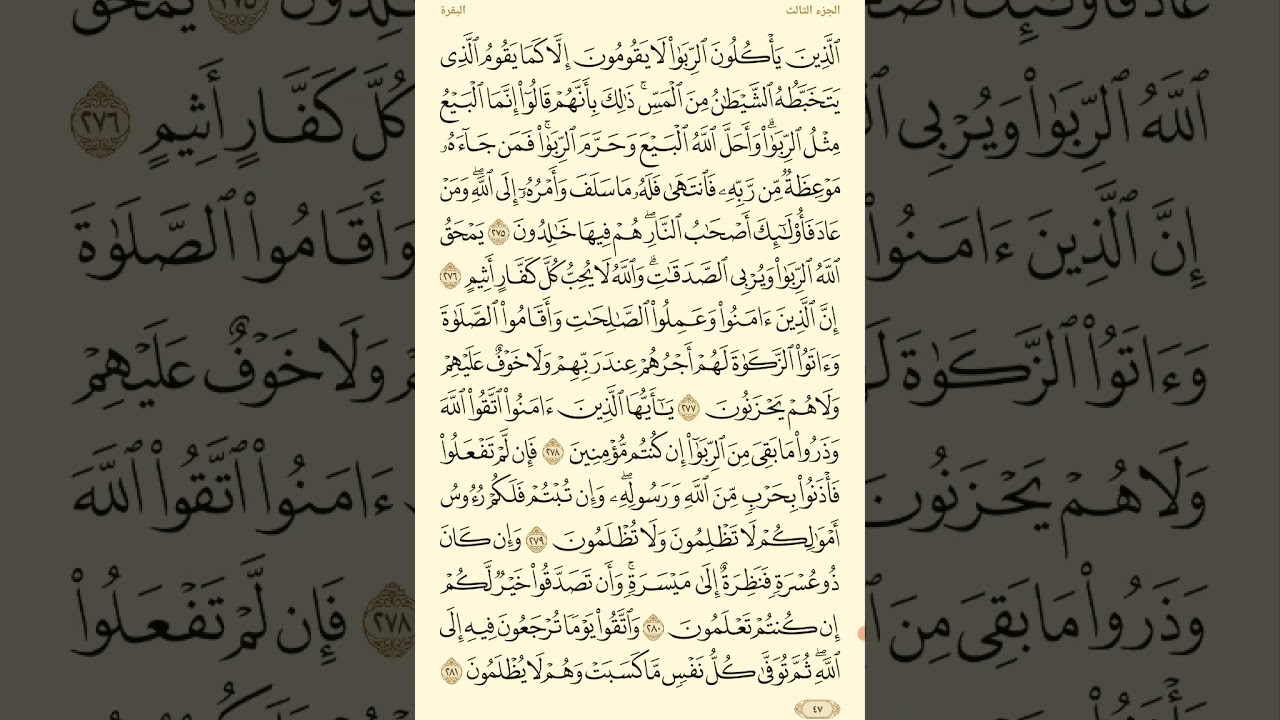 الجزء الثالث
البقرة
ٱلَّذِينَ يَأۡكُلُونَ ٱلرِّبَوٰاْ لَا يَقُومُونَ إِلَّا كَمَا يَقُومُ ٱلَّذِى
يَتَخَبَّطُهُ ٱلشَّيۡطَٰنُ مِنَ ٱلۡمَسِّۚ ذَٰلِكَ بِأَنَّهُمۡ قَالُوٓاْ إِنَّمَا ٱلۡبَيۡعُ
مِثۡلُ ٱلرِّبَوٰاْۗ وَأَحَلَّ ٱللَّهُ ٱلۡبَيۡعَ وَحَرَّمَ ٱلرِّبَوٰاْۚ فَمَن جَآءَهُۥ
مَوۡعِظَةٞ مِّن رَّبِّهِۦ فَٱنتَهَىٰ فَلَهُۥ مَا سَلَفَ وَأَمۡرُهُۥٓ إِلَى ٱللَّهِۖ وَمَنۡ
عَادَ فَأُوْلَٰٓئِكَ أَصۡحَٰبُ ٱلنَّارِۖ هُمۡ فِيهَا خَٰلِدُونَ ٢٧٥ يَمۡحَقُ
ٱللَّهُ ٱلرِّبَوٰاْ وَيُرۡبِى ٱلصَّدَقَٰتِۗ وَٱللَّهُ لَا يُحِبُّ كُلَّ كَفَّارٍ أَثِيمٍ ٢٧٦
إِنَّ ٱلَّذِينَ ءَامَنُواْ وَعَمِلُواْ ٱلصَّٰلِحَٰتِ وَأَقَامُواْ ٱلصَّلَوٰةَ
وَءَاتَوُاْ ٱلزَّكَوٰةَ لَهُمۡ أَجۡرُهُمۡ عِندَ رَبِّهِمۡ وَلَا خَوۡفٌ عَلَيۡهِمۡ
وَلَا هُمۡ يَحۡزَنُونَ ٢٧٧ يَٰٓأَيُّهَا ٱلَّذِينَ ءَامَنُواْ ٱتَّقُواْ ٱللَّهَ
وَذَرُواْ مَا بَقِىَ مِنَ ٱلرِّبَوٰٓاْ إِن كُنتُم مُّؤۡمِنِينَ ٢٧٨ فَإِن لَّمۡ تَفۡعَلُواْ
فَأۡذَنُواْ بِحَرۡبٖ مِّنَ ٱللَّهِ وَرَسُولِهِۦۖ وَإِن تُبۡتُمۡ فَلَكُمۡ رُءُوسُ
أَمۡوَٰلِكُمۡ لَا تَظۡلِمُونَ وَلَا تُظۡلَمُونَ ٢٧٩ وَإِن كَانَ
ذُو عُسۡرَةٖ فَنَظِرَةٌ إِلَىٰ مَيۡسَرَةٖۚ وَأَن تَصَدَّقُواْ خَيۡرٞ لَّكُمۡ
إِن كُنتُمۡ تَعۡلَمُونَ ٢٨٠ وَٱتَّقُواْ يَوۡمٗا تُرۡجَعُونَ فِيهِ إِلَى
ٱللَّهِۖ ثُمَّ تُوَفَّىٰ كُلُّ نَفۡسٖ مَّا كَسَبَتۡ وَهُمۡ لَا يُظۡلَمُونَ ٢٨١
٤٧